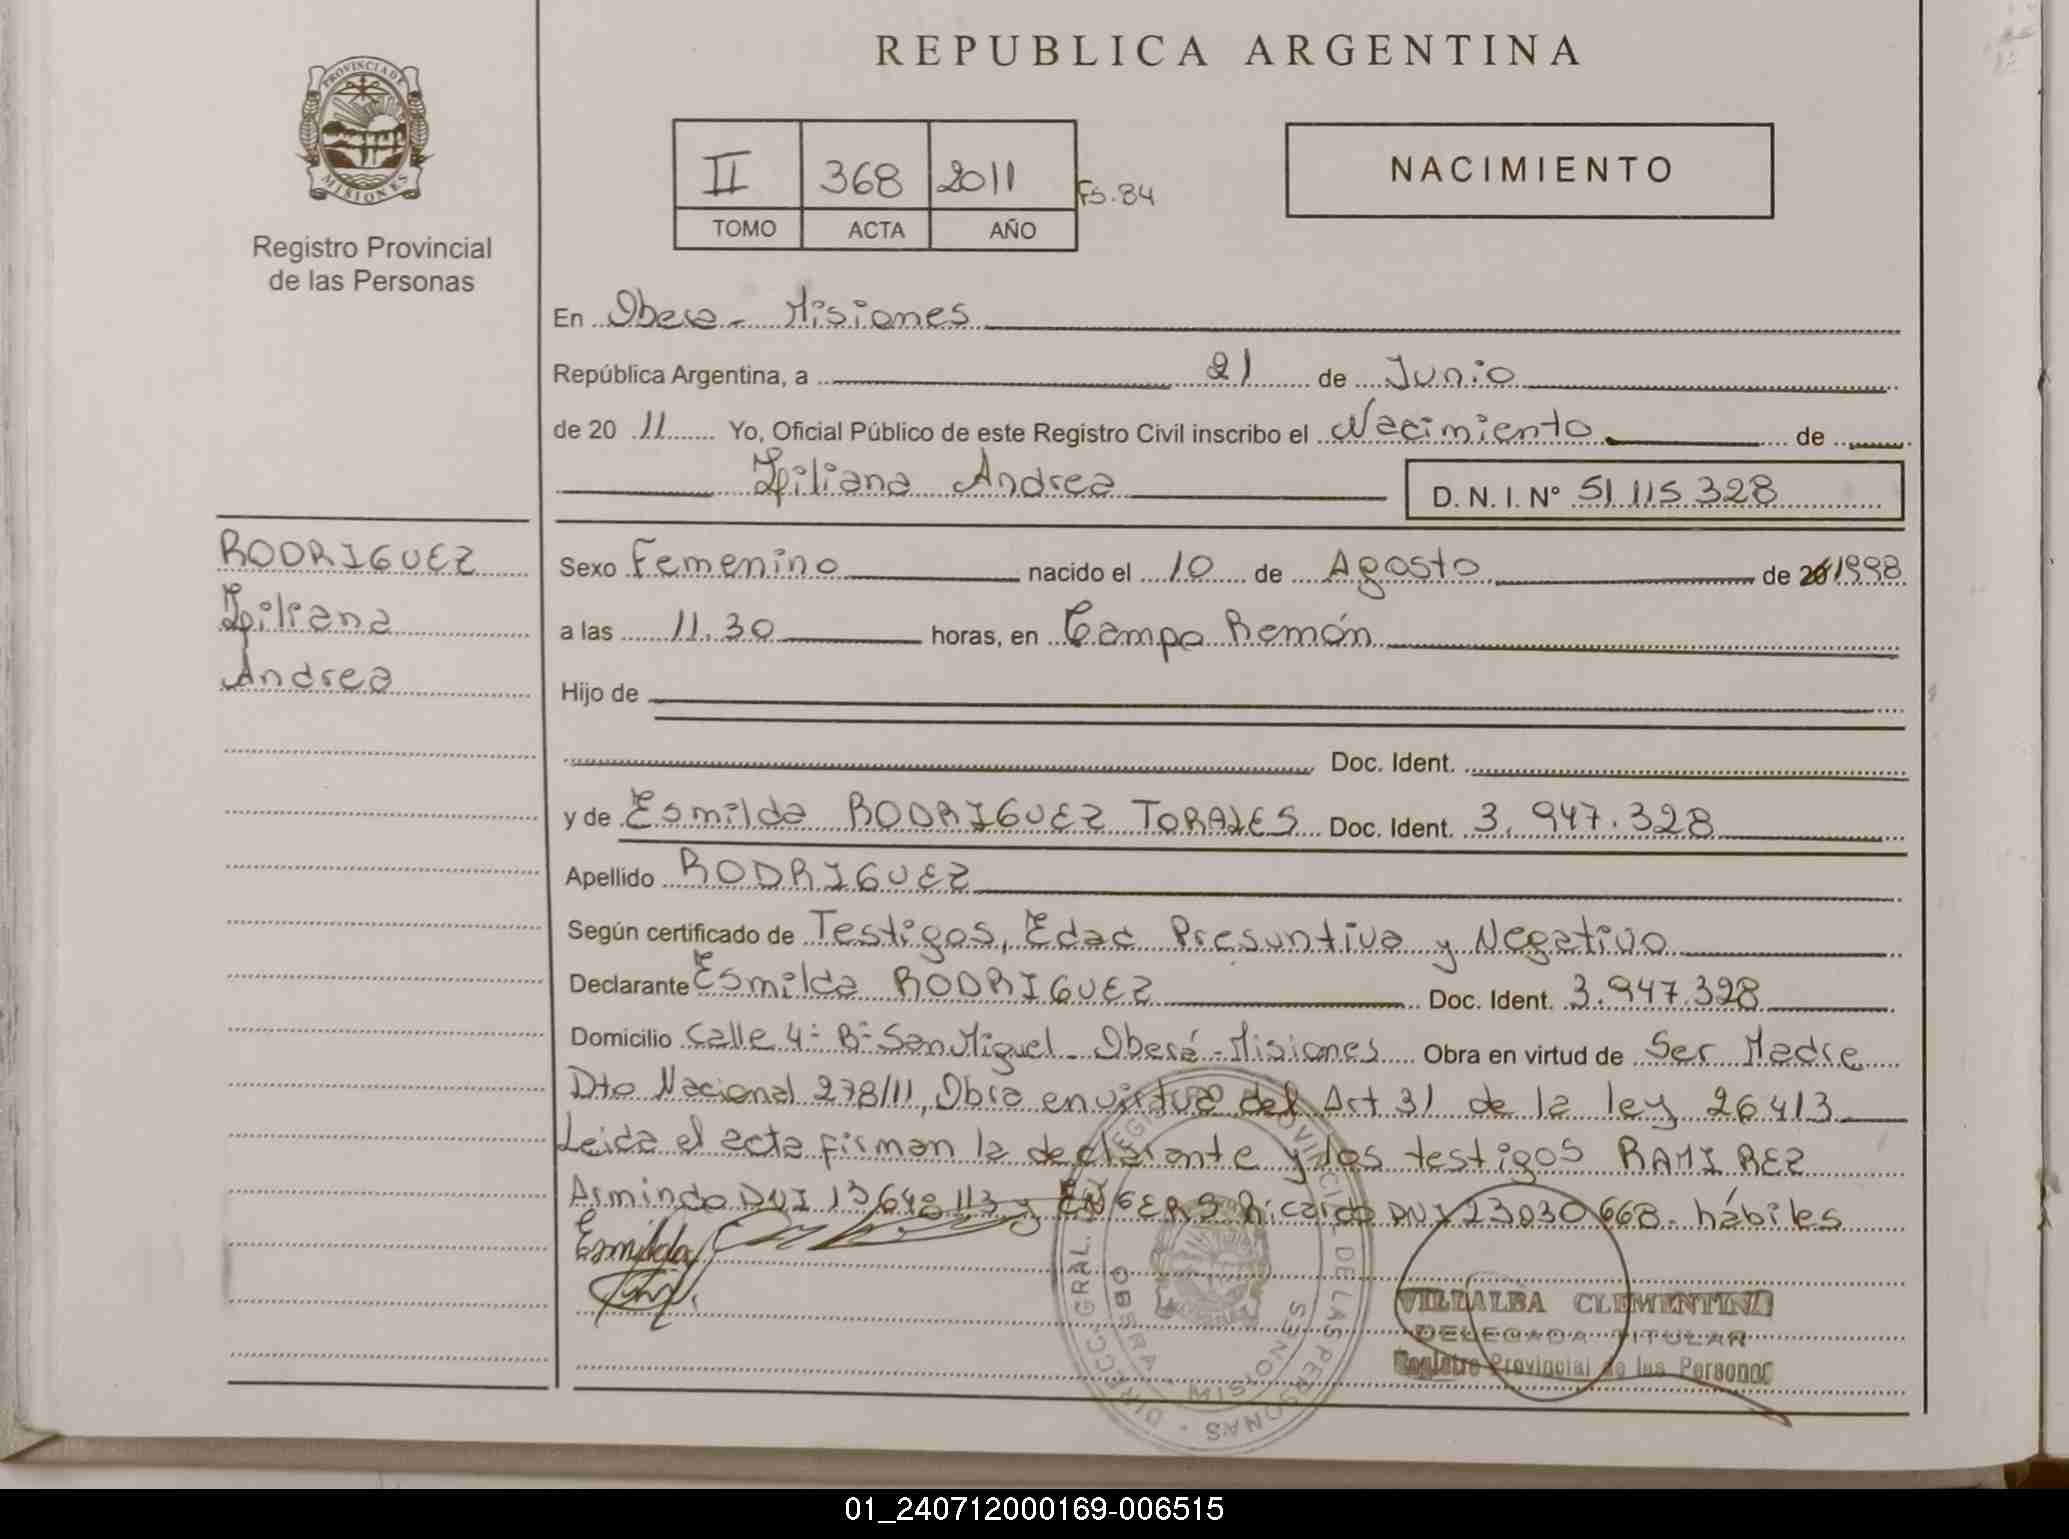 REPUBLICA ARGENTINA
PROVINCIA DE
MISIONES
Registro Provincial
de las Personas
II 368 2011 Fs.84
TOMO ACTA AÑO
NACIMIENTO
En Obera - Misiones
República Argentina, a 21 de Junio
de 20 11 Yo, Oficial Público de este Registro Civil inscribo el Nacimiento de
Liliana Andrea D. N. I. N° 51.115.328
RODRIGUEZ
Liliana
Andrea
Sexo Femenino nacido el 10 de Agosto de 1998
a las 11.30 horas, en Campo Ramón
Hijo de
Doc. Ident.
y de Esmilda RODRIGUEZ TORALES Doc. Ident. 3.947.328
Apellido RODRIGUEZ
Según certificado de Testigos, Edad Presuntiva y Negativo
Declarante Esmilda RODRIGUEZ Doc. Ident. 3.947.328
Domicilio Calle 4- B- San Miguel - Oberá - Misiones Obra en virtud de Ser Madre
Dto Nacional 278/11, Obra en virtud del Art 31 de la ley 26.413
Leida el acta firman la declarante y los testigos RAMIREZ
Armindo DNI 13648113 y ENGERS Ricardo DNI 23030668. hábiles
Esmilda
VILLALBA CLEMENTINA
DELEGADA TITULAR
Registro Provincial de las Personas
DIRECC. GRAL. REGISTRO PROVINCIAL DE LAS PERSONAS
MISIONES
01_240712000169-006515